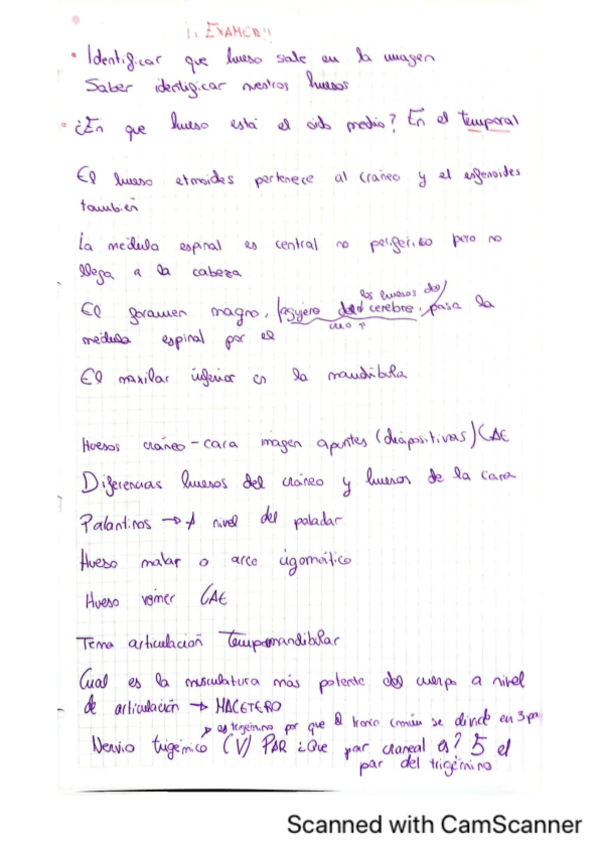 ¡¡ EXAMEN!!
• Identificar que hueso sale en la imagen
Saber identificar nuestros huesos
• ¿En que hueso está el oido medio? En el temporal
El hueso etmoides pertenece al cráneo y el esfenoides
también
La médula espinal es central no periférico pero no
llega a la cabeza
los huesos del
El foramen magno, (agujero del cerebro, pasa la
médula espinal por el
El maxilar inferior es la mandíbula
Huesos cráneo-cara imagen apuntes (diapositivas) CAE
Diferencias huesos del cráneo y huesos de la cara
Palantinos → A nivel del paladar
Hueso malar o arco cigomático
Hueso vomer CAE
Tema articulación Tempomandibular
Cual es la musculatura más potente del cuerpo a nivel
de articulación → MACETERO
→ es trigémino por que el tronco común se divide en 3 pa
Nervio trigémico (V) PAR ¿Que par craneal es? 5 el
par del trigémino
Scanned with CamScanner